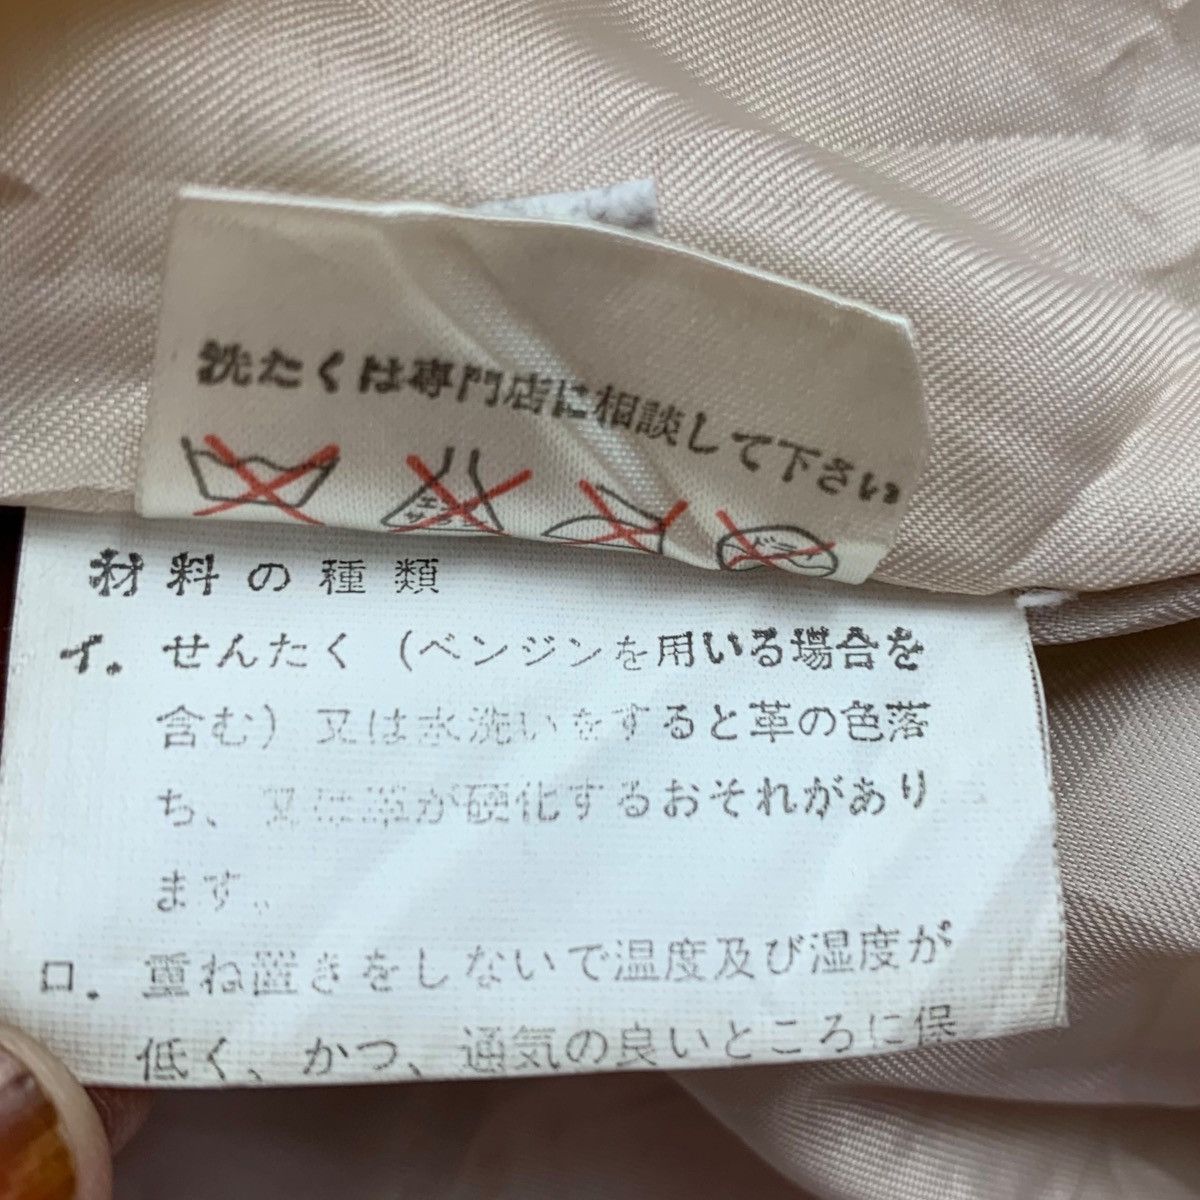 洗たくは専門店に相談して下さい
材料の種類
イ. せんたく (ベンジンを用いる場合を
含む) 又は水洗いをすると革の色落
ち、又は革が硬化するおそれがあり
ます。
ロ. 重ね置きをしないで温度及び湿度が
低く、かつ、通気の良いところに保